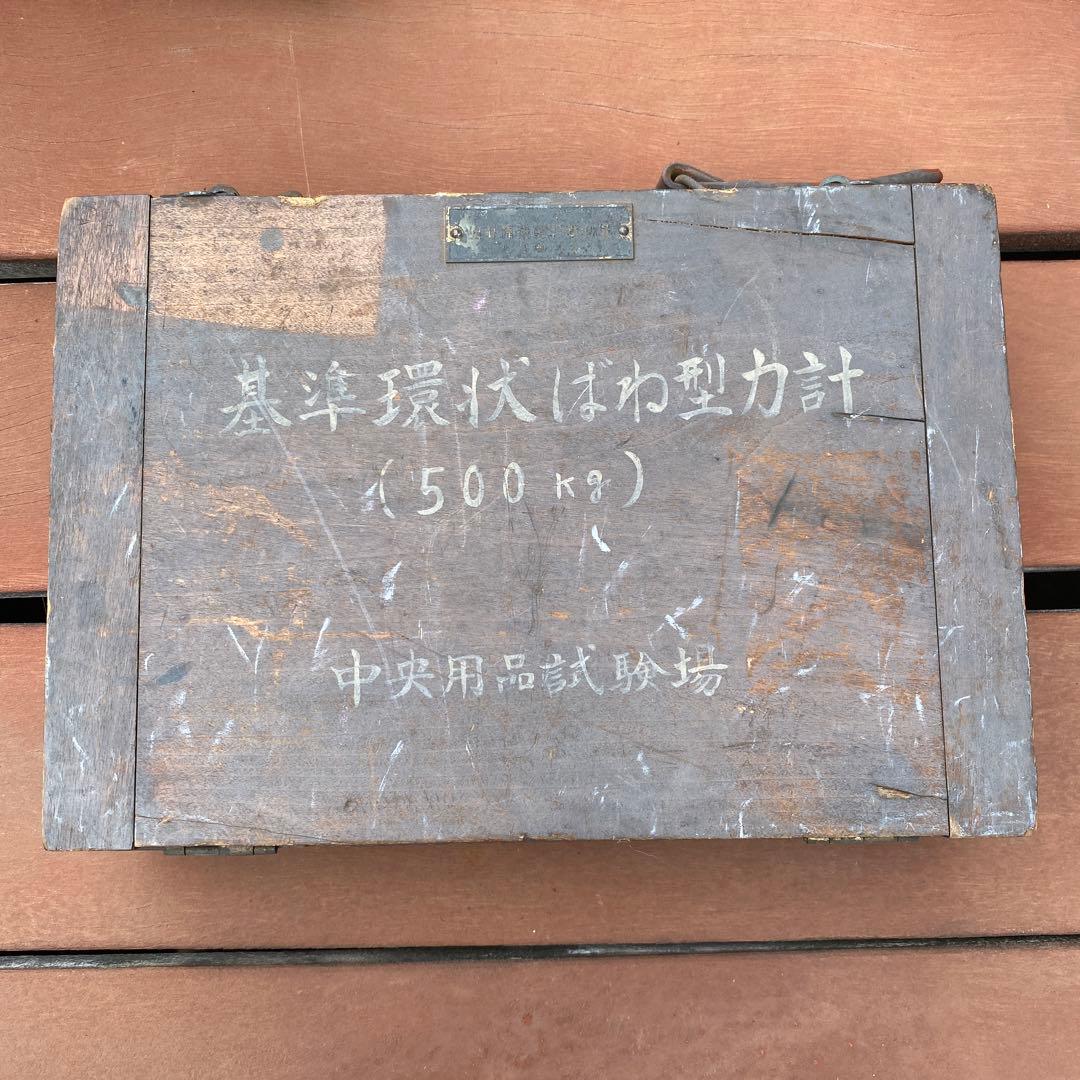 基準環状ばね型力計
(500 kg)
中央用品試験場